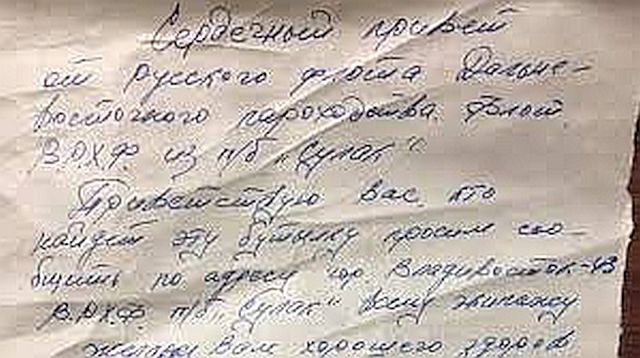 Сердечный привет
от русского флота Дальне-
восточного пароходства. Флот
В.Р.Х.Ф. из п/б „Сулак"
Приветствую вас, кто
найдет эту бутылку просим соо-
бщить по адресу гор. Владивосток-43
В.Р.Х.Ф. п/б „Сулак" всему экипажу
желаем вам хорошего здоров